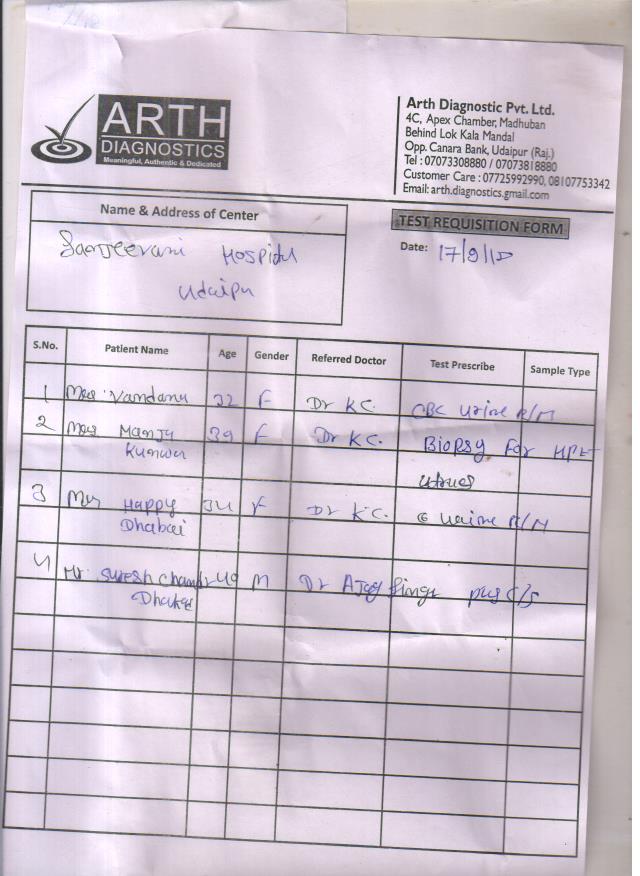 ARTH
DIAGNOSTICS
Meaningful, Authentic & Dedicated
Arth Diagnostic Pvt. Ltd.
4C, Apex Chamber, Madhuban
Behind Lok Kala Mandal
Opp. Canara Bank, Udaipur (Raj.)
Tel : 07073308880 / 07073818880
Customer Care : 07725992990, 08107753342
Email: arth.diagnostics.gmail.com
Name & Address of Center
TEST REQUISITION FORM
Sanjeevani Hospital
Date: 17/9/18
Udaipur
S.No. Patient Name Age Gender Referred Doctor Test Prescribe Sample Type
1 Mrs. Vandana 32 F Dr KC. CBC Urine R/M
2 Mrs Manju 39 F Dr KC. Biopsy For HPE
Kunwar
3 Mrs Happy 34 F Dr KC. Urine R/M
Dhabai
4 Mr Suresh Chandr 49 M Dr Ajay pus C/S
Dhakar